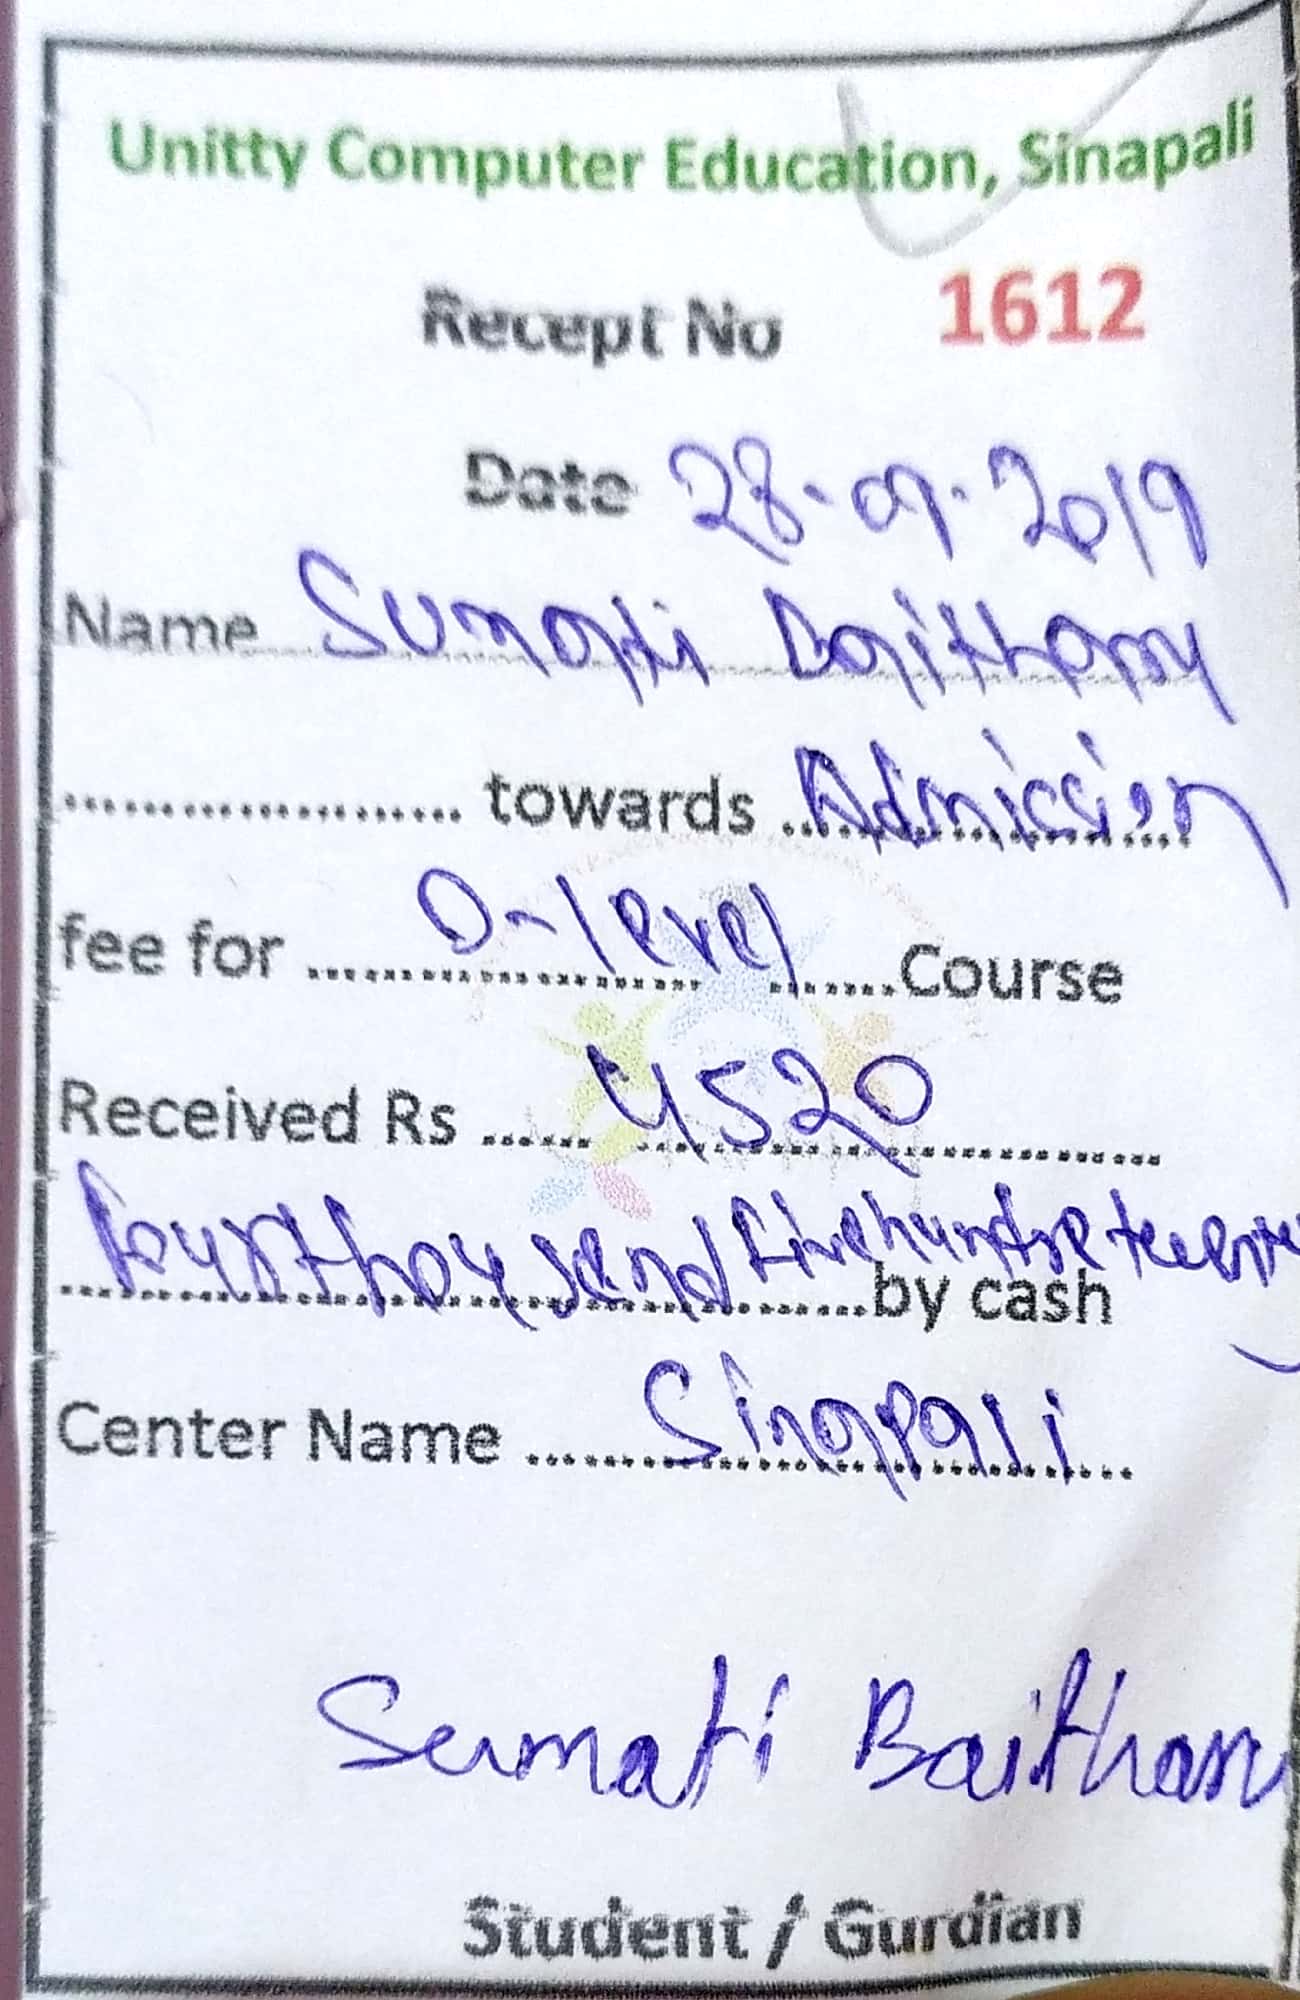 Unitty Computer Education, Sinapali
Recept No 1612
Date 28-09-2019
Name Sumati Baitharu
.................... towards Admission
fee for O-level Course
Received Rs 4520
fourthousend fivehundre twenty
by cash
Center Name Sinapali
Sumati Baitharu
Student / Gurdian